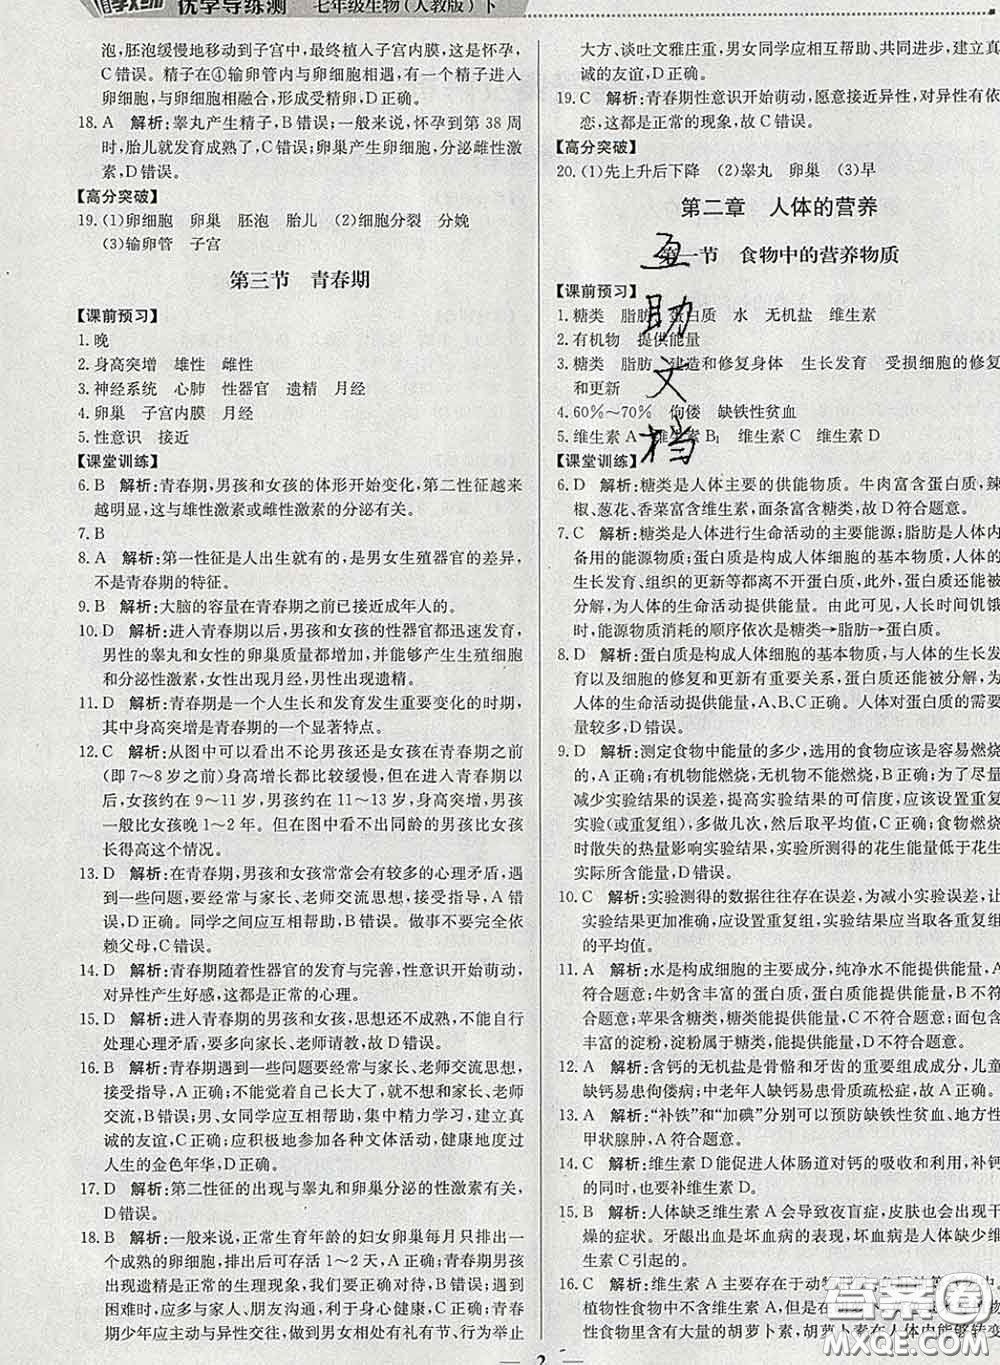 优学导练测 七年级生物(人教版)下
索，胚胎缓慢地移动到子宫中，最终植入子宫内膜，这是怀孕，
C错误。精子在④输卵管内与卵细胞相遇，有一个精子进入
卵细胞，与卵细胞相融合，形成受精卵，D正确。
18. A 解析：睾丸产生精子，B错误；一般来说，怀孕到第38周
时，胎儿就发育成熟了，C错误；卵巢产生卵细胞，分泌雌性激
素，D错误。
【高分突破】
19. (1)卵细胞 卵巢 胚泡 胎儿 (2)细胞分裂 分娩
(3)输卵管 子宫
第三节 青春期
【课前预习】
1. 晚
2. 身高突增 雄性 雌性
3. 神经系统 心肺 性器官 遗精 月经
4. 卵巢 子宫内膜 月经
5. 性意识 接近
【课堂训练】
6. B 解析：青春期，男孩和女孩的体形开始变化，第二性征越来
越明显，这与雄性激素或雌性激素的分泌有关。
7. B
8. A 解析：第一性征是人出生就有的，是男女生殖器官的差异，
不是青春期的特征。
9. B 解析：大脑的容量在青春期之前已接近成年人的。
10. D 解析：进入青春期以后，男孩和女孩的性器官都迅速发育，
男性的睾丸和女性的卵巢质量都增加，并能够产生生殖细胞
和分泌性激素，女性出现月经，男性出现遗精。
11. D 解析：青春期是一个人生长和发育发生重要变化的时期，
其中身高突增是青春期的一个显著特点。
12. C 解析：从图中可以看出不论男孩还是女孩在青春期之前
(即7～8岁之前)身高增长都比较缓慢，但在青春期增长迅
速，女孩约在9～11岁，男孩约在11～13岁，身高突增，男孩
一般比女孩晚1～2年。但在图中看不出同龄的男孩比女孩
长得高这个结果。
13. D 解析：在青春期，男孩和女孩常常会有较多的心理矛盾，遇
到一些问题，要经常与家长、老师交流思想，接受指导，A错
误，D正确。同学之间应互相帮助，B错误。做事不要完全依
赖父母，C错误。
14. D 解析：青春期随着性器官的发育与完善，性意识开始萌动，
对异性产生好感，这是正常的心理。
15. D 解析：进入青春期的男孩和女孩，思想还不成熟，不能自行
处理心理矛盾，要向家长、老师请教，故D错误。
16. B 解析：青春期遇到一些问题要经常与家长、老师交流思想，
接受指导，A正确；随着自我意识增强，就不想和家长、老师
交流，B错误；男、女同学应互相帮助，集中精力学习，建立真
诚的友谊，C正确；应积极地参加各种文体活动，健康地度过
人生的金色年华，D正确。
17. D 解析：第二性征的出现与睾丸和卵巢分泌的性激素有关，
D错误。
18. B 解析：一般来说，正常生育年龄的妇女卵巢每月只排出一
个成熟的卵细胞，排出后可存活1～2天，A正确；青春期男孩
出现遗精是正常的生理现象，我们要正确对待，B错误；遇到
困难时，应与家人、朋友沟通，利于身心健康，C正确；
青春期少年应主动与异性交往，男女同学相处有礼有节，行为举止
大方、谈吐文雅庄重，男女同学应相互帮助、共同进步，建立真
诚的友谊，D正确。
19. C 解析：青春期性意识开始萌动，愿意接近异性，对异性有依
恋，这都是正常的现象，故C错误。
【高分突破】
20. (1)先上升后下降 (2)睾丸 卵巢 (3)早
第二章 人体的营养
第一节 食物中的营养物质
【课前预习】
1. 糖类 脂肪 蛋白质 水 无机盐 维生素
2. 有机物 提供能量
3. 糖类 脂肪 建造和修复身体 生长发育 受损细胞的修复
和更新
4. 60%～70% 佝偻 缺铁性贫血
5. 维生素A 维生素B₁ 维生素C 维生素D
【课堂训练】
6. D 解析：糖类是人体主要的供能物质。牛肉富含蛋白质，辣
椒、葱花、香菜富含维生素，面条富含糖类，故D符合题意。
7. C 解析：糖类是人体进行生命活动的主要能源；脂肪是人体内
备用的能源物质；蛋白质是构成人体细胞的基本物质，人体的
生长发育、组织的更新等都离不开蛋白质，此外，蛋白质还能被
分解，为人体的生命活动提供能量。由此可见，人长时间饥饿
时，能源物质消耗的顺序依次是糖类→脂肪→蛋白质。
8. D 解析：蛋白质是构成人体细胞的基本物质，与人体的生长发
育以及细胞的修复和更新有重要关系，蛋白质还能被分解，为
人体的生命活动提供能量，A、B、C正确。人体对蛋白质的需要
量较多，D错误。
9. D 解析：测定食物中能量的多少，选用的食物应该是容易燃烧
的，A正确；有机物能燃烧，无机物不能燃烧，B正确；为了尽量
减少实验结果的误差，提高实验结果的可信度，应该设置重复
实验(或重复组)，多做几次，然后取平均值，C正确；食物燃烧
时散失的热量影响实验结果，实验所测得的花生能量低于花生
实际所含能量，D错误。
10. C 解析：实验测得的数据往往存在误差，为减小实验误差，让
实验结果更加准确，应设置重复组，实验结果应当取各重复组
的平均值。
11. A 解析：水是构成细胞的主要成分，纯净水不能提供能量，A
符合题意；牛奶含丰富的蛋白质，能提供能量，B不符合题
意；苹果含糖类，糖类能提供能量，C不符合题意；面包含
丰富的淀粉，淀粉属于糖类，能提供能量，D不符合题意。
12. A 解析：含钙的无机盐是骨骼和牙齿的重要组成成分，儿童
缺钙易患佝偻病；中老年人缺钙易患骨质疏松症，故A正确。
13. A 解析：“补铁”和“加碘”分别可以预防缺铁性贫血、地方性
甲状腺肿，A符合题意。
14. C 解析：维生素D能促进人体肠道对钙的吸收和利用，补钙
的同时，也要补维生素D。
15. B 解析：人体缺乏维生素A常会导致夜盲症，皮肤也会有干
燥的症状。牙龈出血是坏血病的主要表现，是人体缺少维生
素C引起的。
16. C 解析：维生素A主要存在于动物肝脏、鱼肝油等食物中，
植物性食物中不含维生素A，但是很多植物性食物中
含有大量的胡萝卜素，胡萝卜素在人体内能够转变
互助文档
答案圈
2